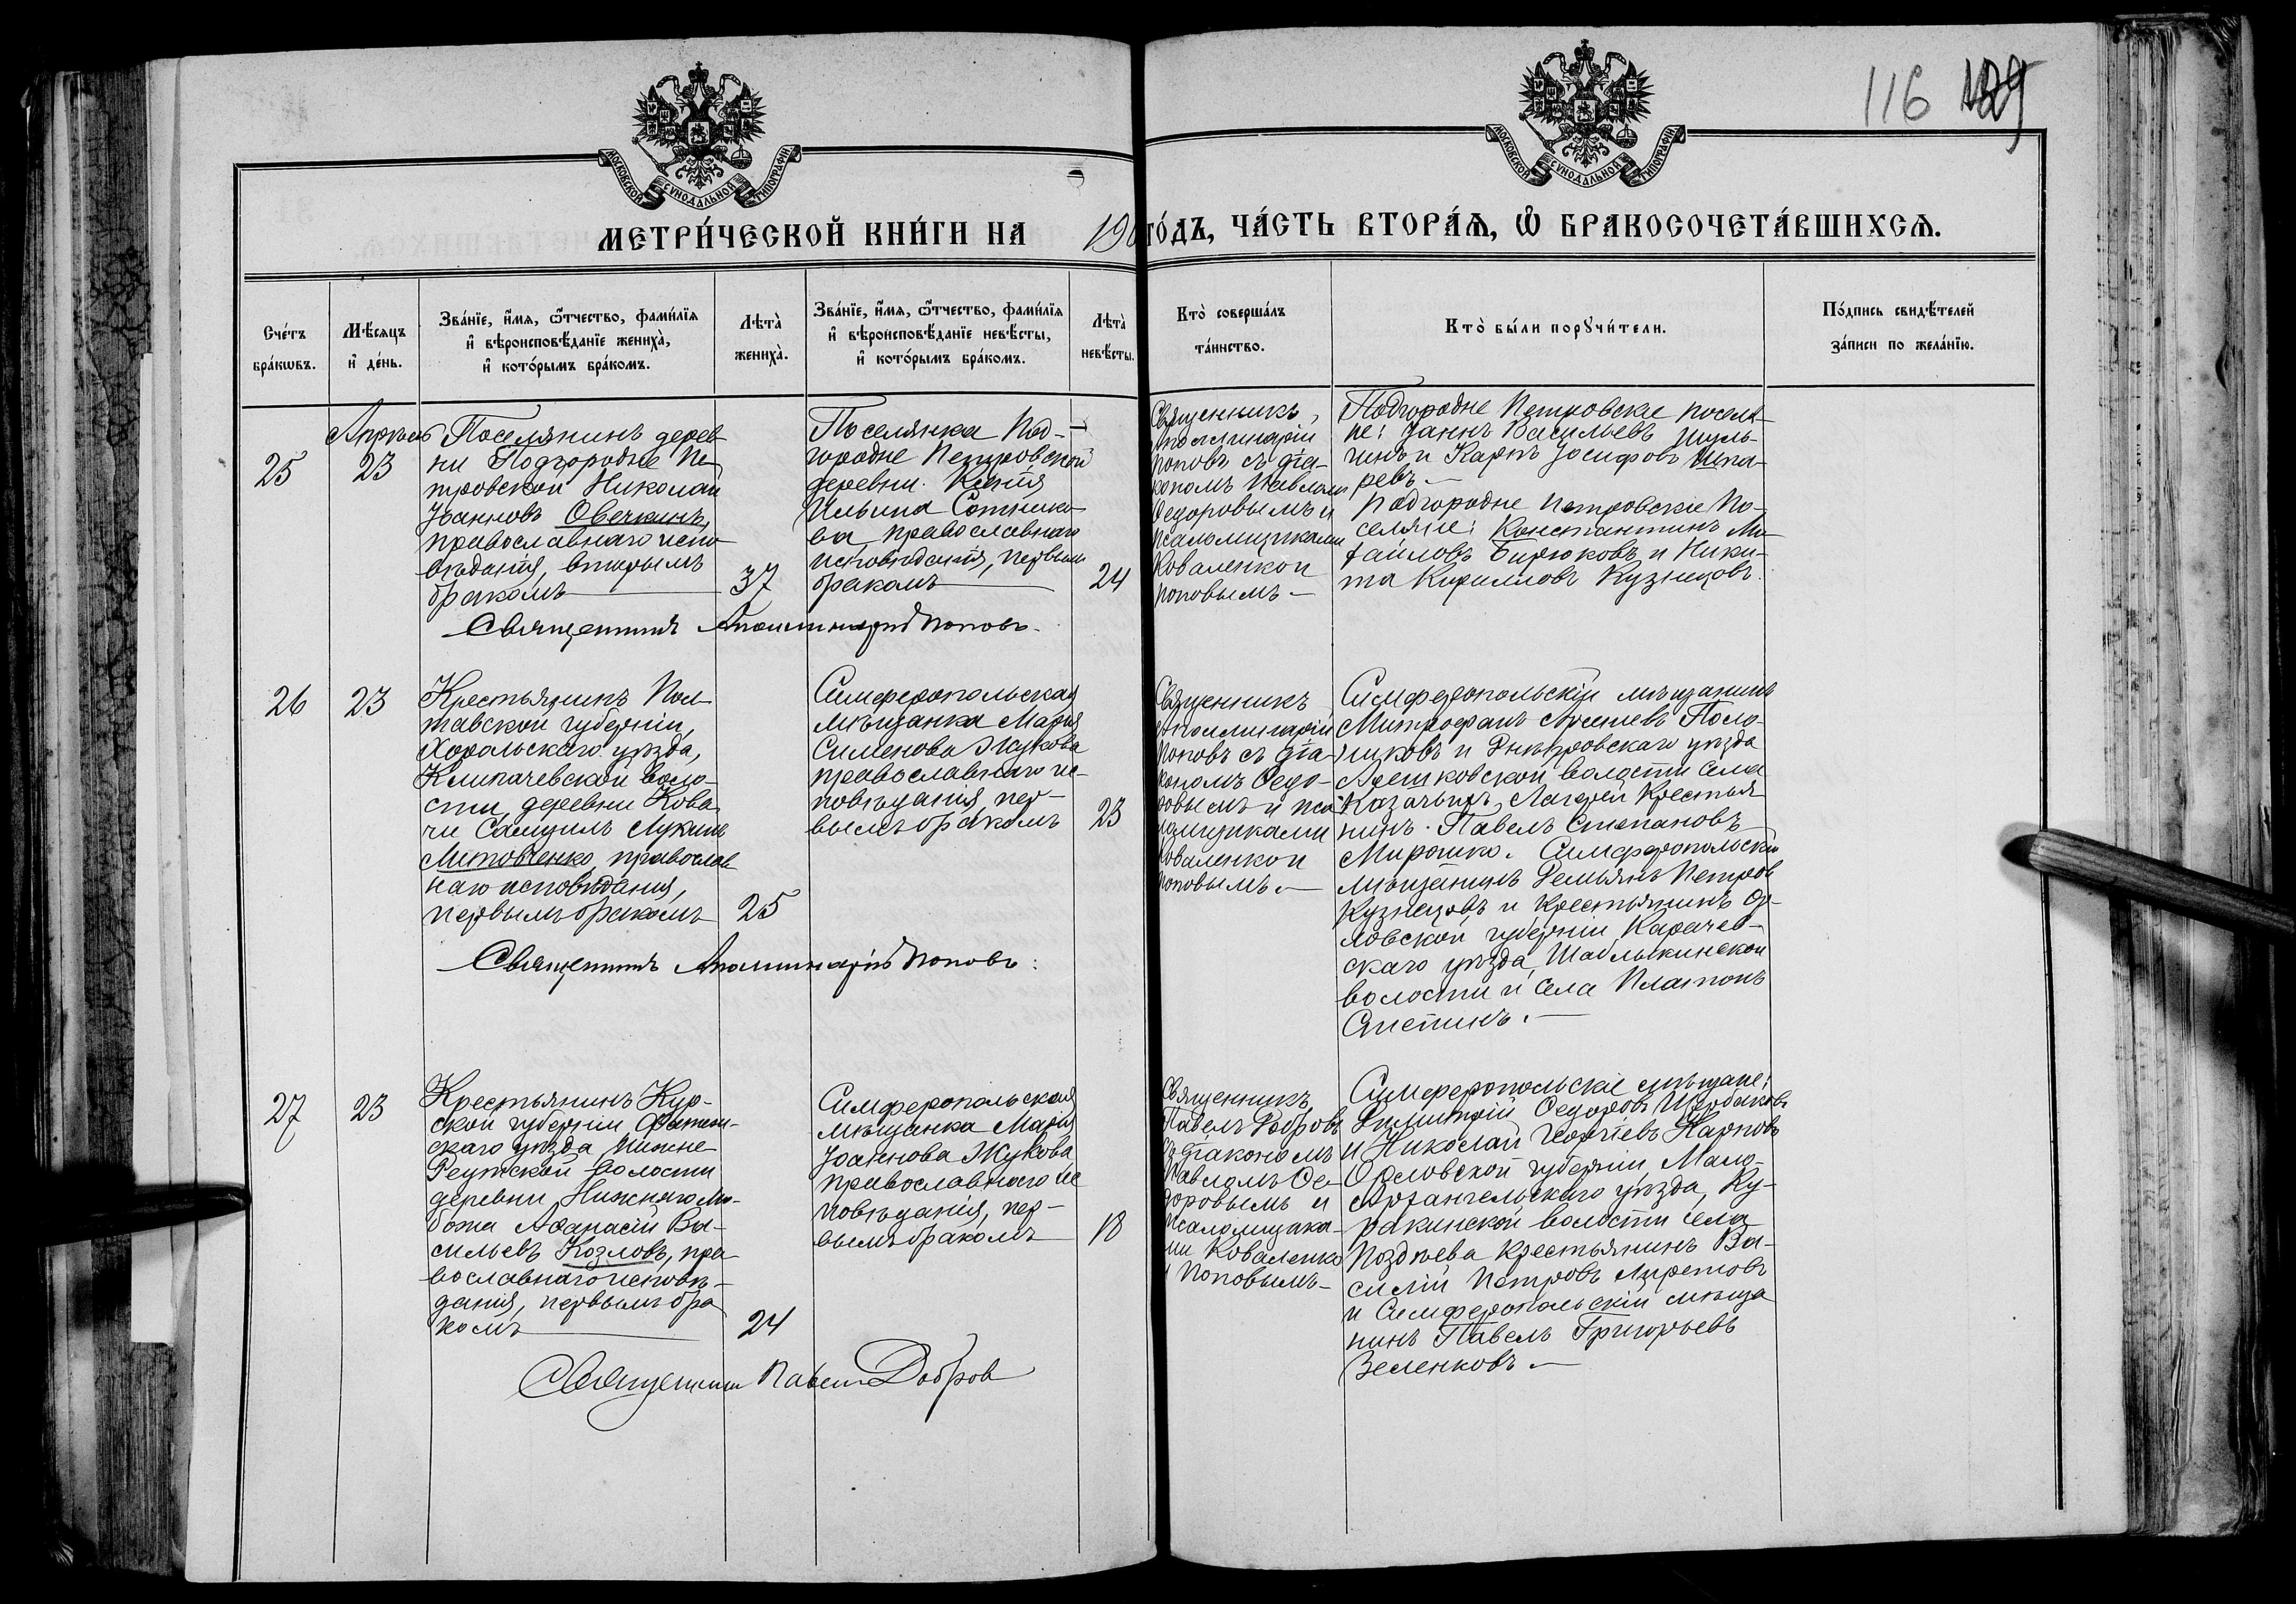 116 129
МОСКОВСКОЙ СѴНОДАЛЬНОЙ ТИПОГРАФІИ
МОСКОВСКОЙ СѴНОДАЛЬНОЙ ТИПОГРАФІИ
МЕТРИ́ЧЕСКОЙ КНИ́ГИ НА 190 ГО́ДЪ, ЧА́СТЬ ВТОРА́Ѧ, Ѽ БРАКОСОЧЕТА́ВШИХСѦ.
Сче́тъ
бра́кѡвъ.
Мѣ́сяцъ
и҆ де́нь.
Зва́нїе, и҆́мя, ѻ҆́тчество, фами́лїя
и҆ вѣроисповѣ́данїе жениха̀,
и҆ кото́рымъ бра́комъ.
Лѣта̀
жениха̀.
Зва́нїе, и҆́мя, ѻ҆́тчество, фами́лїя
и҆ вѣроисповѣ́данїе невѣ́сты,
и҆ кото́рымъ бра́комъ.
Лѣта̀
невѣ́сты.
Кто̀ соверша́лъ
та́инство.
Кто̀ бы́ли порꙋчи́тели.
По́дпись свидѣ́телей
за́писи по жела́нїю.
25
Апрѣль
23
Поселянинъ дерев-
ни Подгородне Пе-
тровской Николай
Іоанновъ Овечкинъ,
православнаго испо-
вѣданія, вторымъ
бракомъ
37
Поселянка Под-
городне Петровской
деревни Ксенія
Ильина Сотнико-
ва православнаго
исповѣданія, первым
бракомъ
24
Священникъ
Аполлинарій
Поповъ съ діа-
кономъ Павломъ
Ѳедоровымъ и
псаломщиками
Коваленко и
Поповымъ.
Подгородне Петровскіе поселя-
не: Іоаннъ Васильевъ Шуль-
гинъ и Карпъ Іосифовъ Шпа-
ревъ.
Подгородне Петровскіе По-
селяне: Константинъ Ми-
хайловъ Бирюковъ и Ники-
та Кирилловъ Кузнецовъ.
Священникъ Аполлинарій Поповъ.
26
23
Крестьянинъ Пол-
тавской губерніи,
Хорольскаго уѣзда,
Клипачевской воло-
сти, деревни Кова-
чи Самуилъ Лукинъ
Литовченко, православ-
наго исповѣданія,
первымъ бракомъ
25
Симферопольская
мѣщанка Марія
Сименова Жукова
православнаго ис-
повѣданія, пер-
вымъ бракомъ
23
Священникъ
Аполлинарій
Поповъ съ діа-
кономъ Ѳедо-
ровымъ и пса-
ломщиками
Коваленко и
Поповымъ.
Симферопольскій мѣщанинъ
Митрофанъ Поло-
никовъ и Днѣпровскаго уѣзда
Алешковской волости села
Казачьихъ Лагерей крестья-
нинъ Павелъ Степановъ
Мирошко. Симферопольскій
мѣщанинъ Демьянъ Петровъ
Кузнецовъ и крестьянинъ Ор-
ловской губерніи, Карачев-
скаго уѣзда, Шаблыкинской
волости и села Платонъ
Священникъ Аполлинарій Поповъ.
27
23
Крестьянинъ Кур-
ской губерніи Фатеж-
скаго уѣзда Нижне-
Реутской волости
деревни Нижняго Лю-
божа Аѳанасій Ва-
сильевъ Козловъ, пра-
вославнаго исповѣ-
данія, первымъ бра-
комъ
24
Симферопольская
мѣщанка Марія
Іоаннова Жукова
православнаго ис-
повѣданія, пер-
вымъ бракомъ
18
Священникъ
Павелъ Добровъ
съ діакономъ
Павломъ Ѳе-
доровымъ и
псаломщика-
ми Коваленко
и Поповымъ.
Симферопольскіе мѣщане:
Димитрій Ѳедоровъ Щербаковъ
и Николай Георгіевъ Карповъ
Орловской губерніи, Мало-
Архангельскаго уѣзда, Ку-
ракинской волости села
Поздѣева крестьянинъ Ва-
силій Петровъ
и Симферопольскій мѣща-
нинъ Павелъ Григорьевъ
Зеленковъ.
Священникъ Павелъ Добров